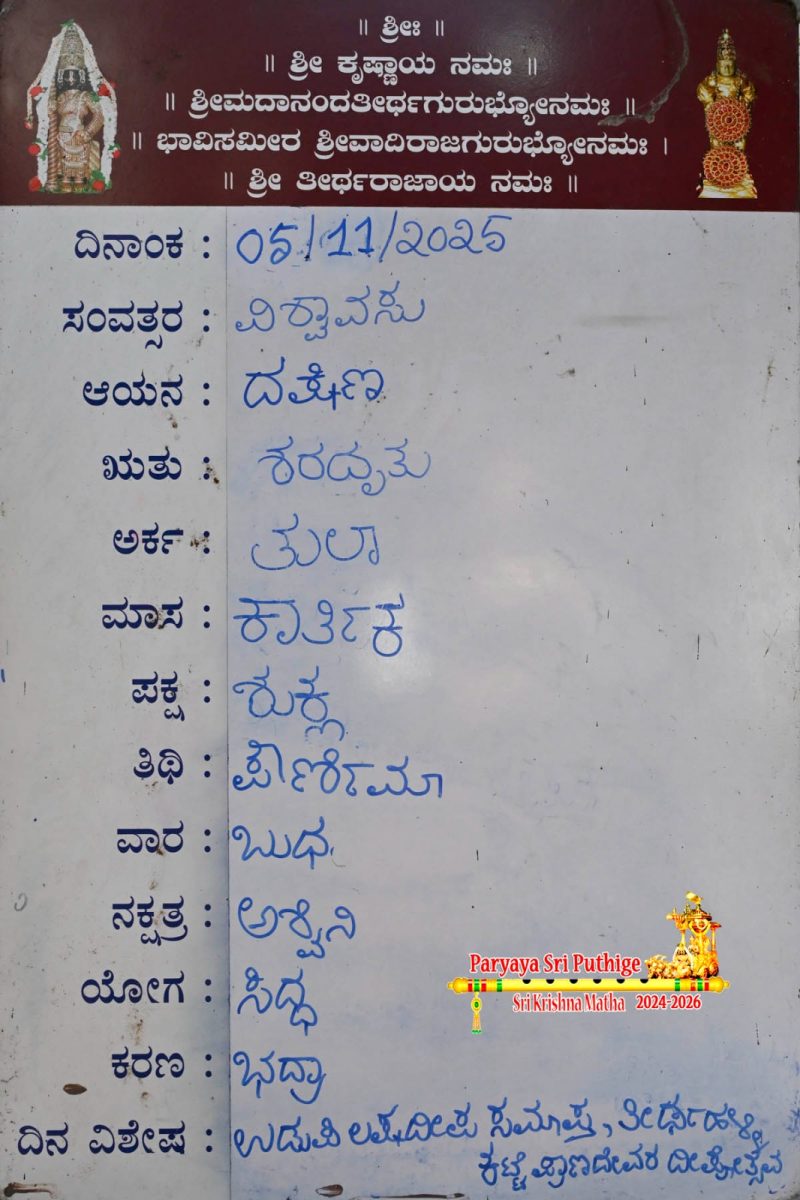 ॥ ಶ್ರೀಃ ॥
॥ ಶ್ರೀ ಕೃಷ್ಣಾಯ ನಮಃ ॥
॥ ಶ್ರೀಮದಾನಂದತೀರ್ಥಗುರುಭ್ಯೋನಮಃ ॥
॥ ಭಾವಿಸಮೀರ ಶ್ರೀವಾದಿರಾಜಗುರುಭ್ಯೋನಮಃ ।
॥ ಶ್ರೀ ತೀರ್ಥರಾಜಾಯ ನಮಃ ॥
ದಿನಾಂಕ : 05/11/2025
ಸಂವತ್ಸರ : ವಿಶ್ವಾವಸು
ಆಯನ : ದಕ್ಷಿಣ
ಋತು : ಶರದೃತು
ಅರ್ಕ : ತುಲಾ
ಮಾಸ : ಕಾರ್ತಿಕ
ಪಕ್ಷ : ಶುಕ್ಲ
ತಿಥಿ : ಪೌರ್ಣಿಮಾ
ವಾರ : ಬುಧ
ನಕ್ಷತ್ರ : ಅಶ್ವಿನಿ
ಯೋಗ : ಸಿದ್ಧ
ಕರಣ : ಭದ್ರಾ
ದಿನ ವಿಶೇಷ : ಉಡುಪಿ ಲಕ್ಷದೀಪ ಸಮಾಪ್ತ, ತೀರ್ಥಹಳ್ಳಿ
ಕಟ್ಟೆ ಪ್ರಾಣದೇವರ ದೀಪೋತ್ಸವ
Paryaya Sri Puthige
Sri Krishna Matha 2024-2026